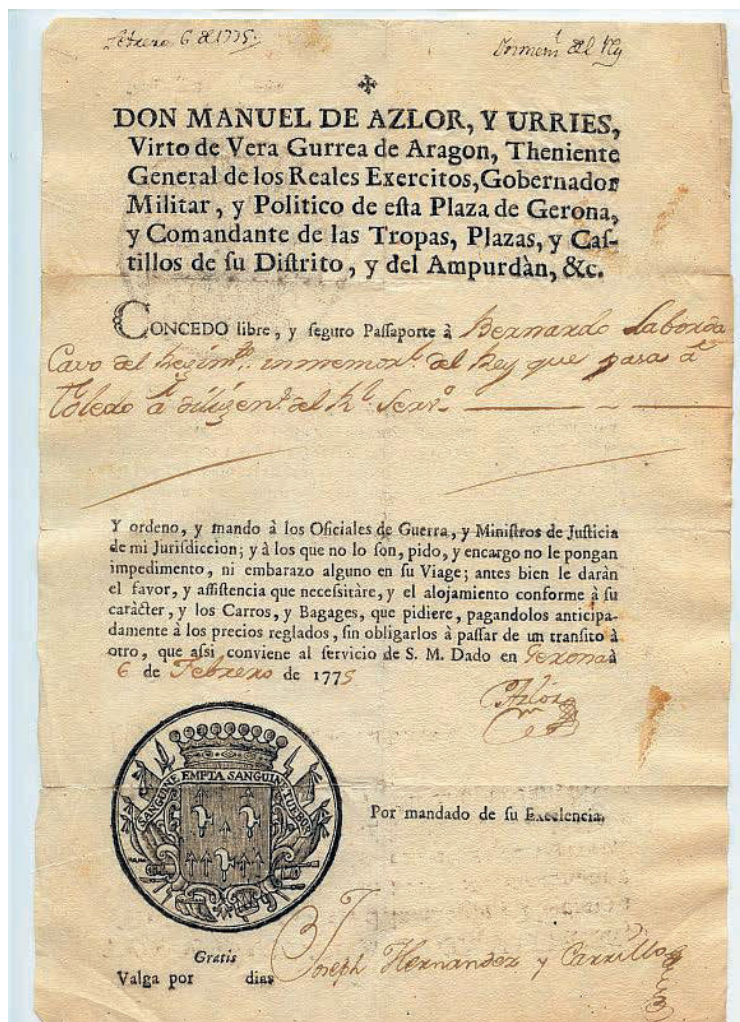 Febrero 6 de 1775.
Inmem.l del Rey
DON MANUEL DE AZLOR, Y URRIES,
Virto de Vera Gurrea de Aragon, Theniente
General de los Reales Exercitos, Gobernador
Militar, y Politico de eſta Plaza de Gerona,
y Comandante de las Tropas, Plazas, y Caſ-
tillos de ſu Diſtrito, y del Ampurdàn, &c.
CONCEDO libre, y ſeguro Paſſaporte à Bernardo Laborda
Cavo del Regim.to inmemor.l del Rey que pasa á
Toledo á diligen.s del R.l Serv.o
Y ordeno, y mando à los Oficiales de Guerra, y Miniſtros de Juſticia
de mi Juriſdiccion; y à los que no lo ſon, pido, y encargo no le pongan
impedimento, ni embarazo alguno en ſu Viage; antes bien le daràn
el favor, y aſſiſtencia que neceſitàre, y el alojamiento conforme à ſu
caràcter, y los Carros, y Bagages, que pidiere, pagandolos anticipa-
damente à los precios reglados, ſin obligarlos à paſſar de un tranſito à
otro, que aſsi conviene al ſervicio de S. M. Dado en Gerona à
6 de Febrero de 1775
Azlor
SANGUINE EMPTA SANGUINE TUEBOR
Por mandado de ſu Excelencia,
Joseph Hernandez y Carrillo
Gratis
Valga por dias